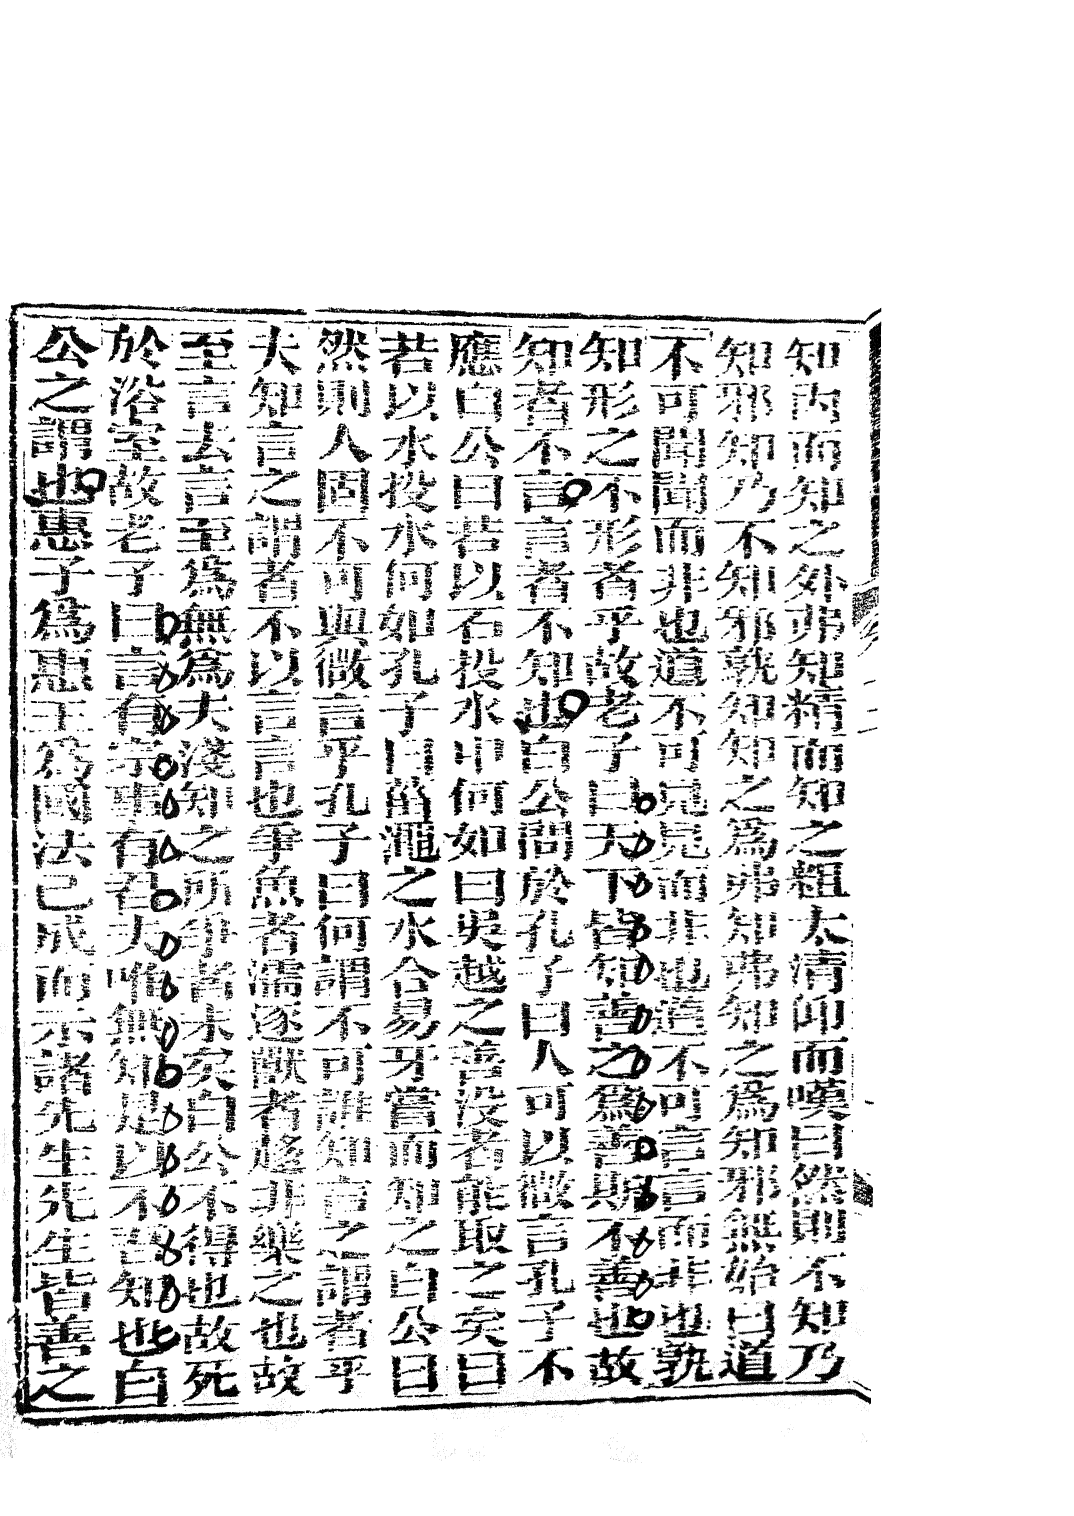 知內而知之外弗知精而知之粗太清仰而嘆曰然則不知乃
知邪知乃不知邪孰知知之爲弗知弗知之爲知邪無始曰道
不可聞聞而非也道不可見見而非也道不可言言而非也孰
知形之不形者乎故老子曰天下皆知善之爲善斯不善也故
知者不言言者不知也白公問於孔子曰人可以微言孔子不
應白公曰若以石投水中何如曰吳越之善没者能取之矣曰
若以水投水何如孔子曰菑澠之水合易牙嘗而知之白公曰
然則人固不可與微言乎孔子曰何謂不可誰知言之謂者乎
夫知言之謂者不以言言也爭魚者濡逐獸者趍非樂之也故
至言去言至爲無爲夫淺知之所爭者末矣白公不得也故死
於浴室故老子曰言有宗事有君夫唯無知是以不吾知也白
公之謂也惠子爲惠王爲國法已成而示諸先生先生皆善之